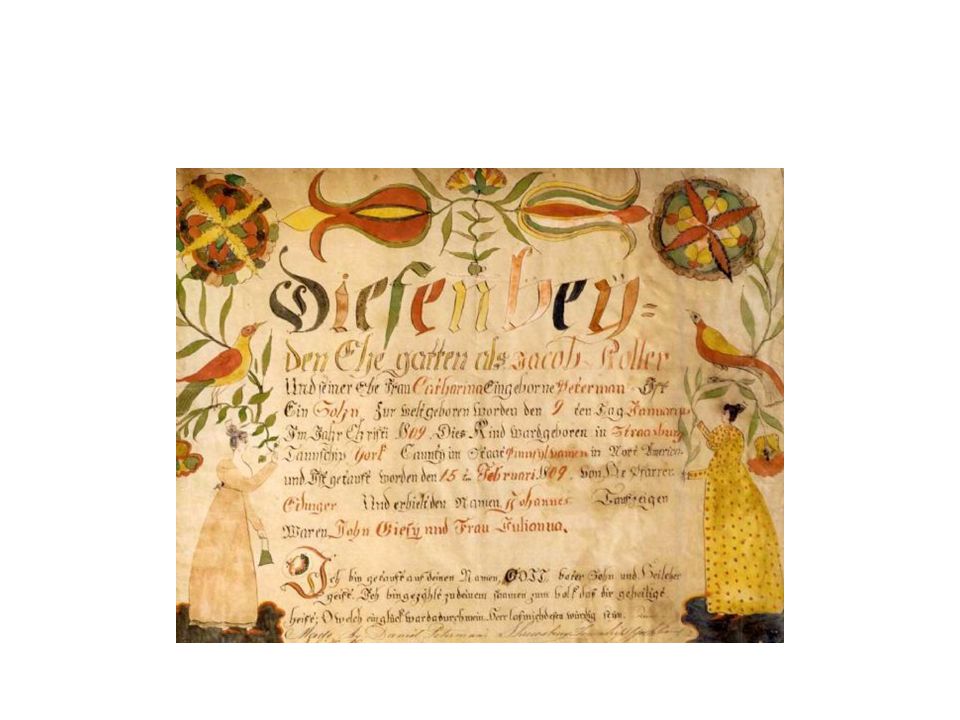 Diesen bey=
den Ehe gatten als Jacob Koller
Und seiner Ehe Frau Catharina Eingeborne Peterman Ist
Ein Sohn Zur welt geboren worden den 9 ten Tag Januarÿ
Im Jahr Christi 1809. Dies Kind ward geboren in Strassburg
Taunschip York Caunty im Staat Pennsylvanien in Nort America.
und Ist getauft worden den 15 ten Februari 1809. von He Pfarrer
Edinger Und erhielt den Namen Johannes Taufzeigen
Waren John Giesy und Frau Julianna.
Ich bin getauft auf deinen Namen, GOTT Vater Sohn und Heilcher
geist. Ich bin gezählt zu deinem saamen zum volk das dir geheiligt
heist; O welch ein glück ward adurch mein. Herr las mich dessen würdig seÿn.
Made by Daniel Peterman Shrewsbury Township York